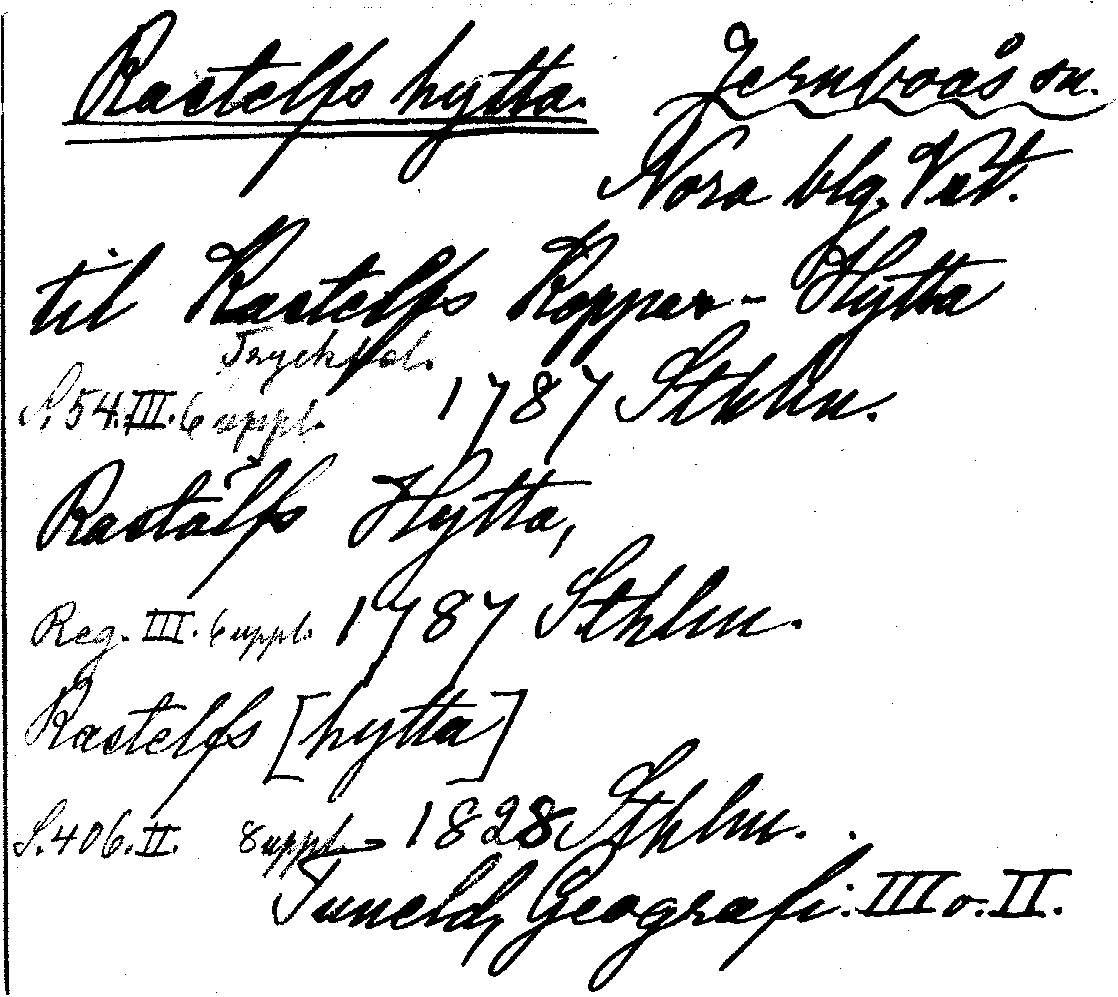 Rastelfs hytta. Jernboås sn.
Nora blg. Vst.
til Rastelfs Koppar-Hytta
Tryckfel.
S. 54. III. 6 uppl. 1787 Sthlm.
Rastälfs Hytta,
Reg. III. 6 uppl. 1787 Sthlm.
Rastelfs [hytta]
S. 406. II. 8 uppl. 1828 Sthlm.
Tuneld, Geografi. III o. II.